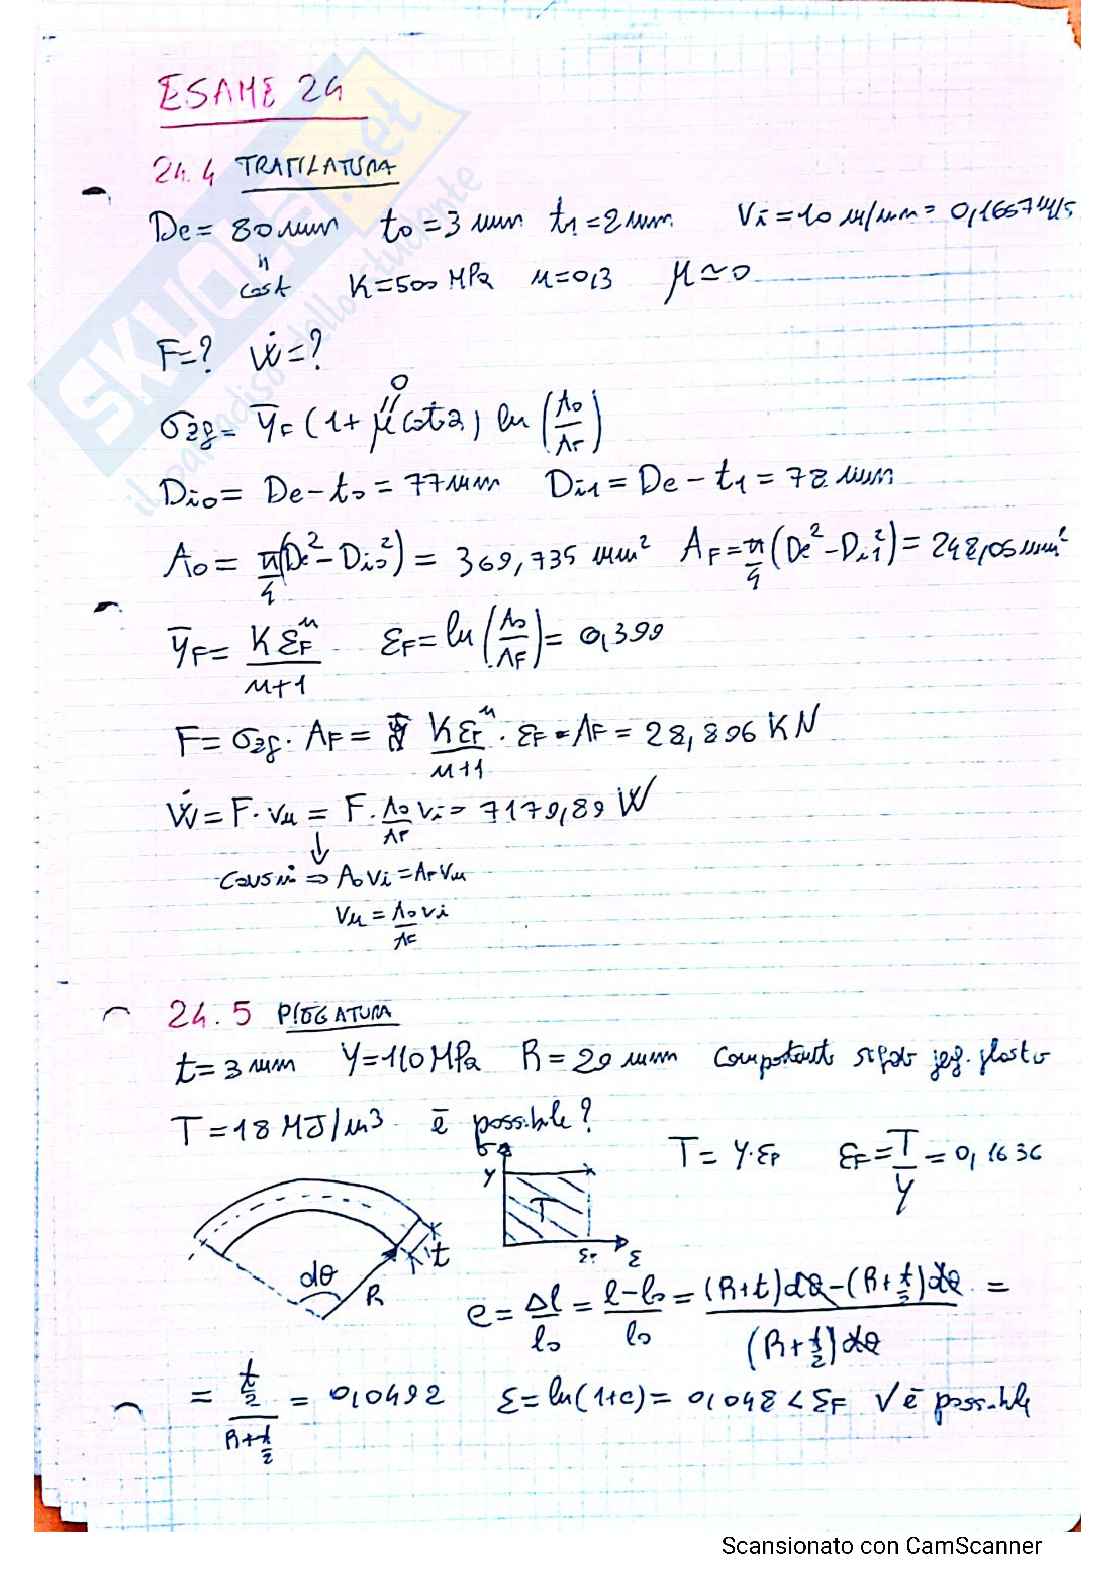 ESAME 24
24.4 TRAFILATURA
De = 80 mm t0 = 3 mm t1 = 2 mm Vi = 10 m/min = 0,1667 m/s
"
cost K = 500 MPa n = 0,3 μ ≃ 0
F = ? Ẇ = ?
0
σzf = ȲF (1 + μ cot α) ln (A0/AF)
Di0 = De - t0 = 77 mm Di1 = De - t1 = 78 mm
A0 = π/4 (De² - Di0²) = 369,735 mm² AF = π/4 (De² - Di1²) = 248,05 mm²
ȲF = K εF^n / n+1 εF = ln (A0/AF) = 0,399
F = σzf · AF = K εF^n / n+1 · εF · AF = 28,896 KN
Ẇ = F · Vu = F · A0/AF Vi = 7179,89 W
⇒ A0 Vi = AF Vu
Vu = A0 Vi / AF
24.5 PIEGATURA
t = 3 mm Y = 110 MPa R = 29 mm rigido
T = 18 MJ/m³ è possibile?
σ
Y
T
εF
ε
T = Y · εF εF = T/Y = 0,1636
dθ
R
t
e = Δl/l0 = l - l0 / l0 = (R+t)dθ - (R+t/2)dθ / (R+t/2)dθ =
= t/2 / R+t/2 = 0,0492 ε = ln(1+e) = 0,048 < εF √ è possibile
SKUOLA.net
il paradiso dello studente
Scansionato con CamScanner